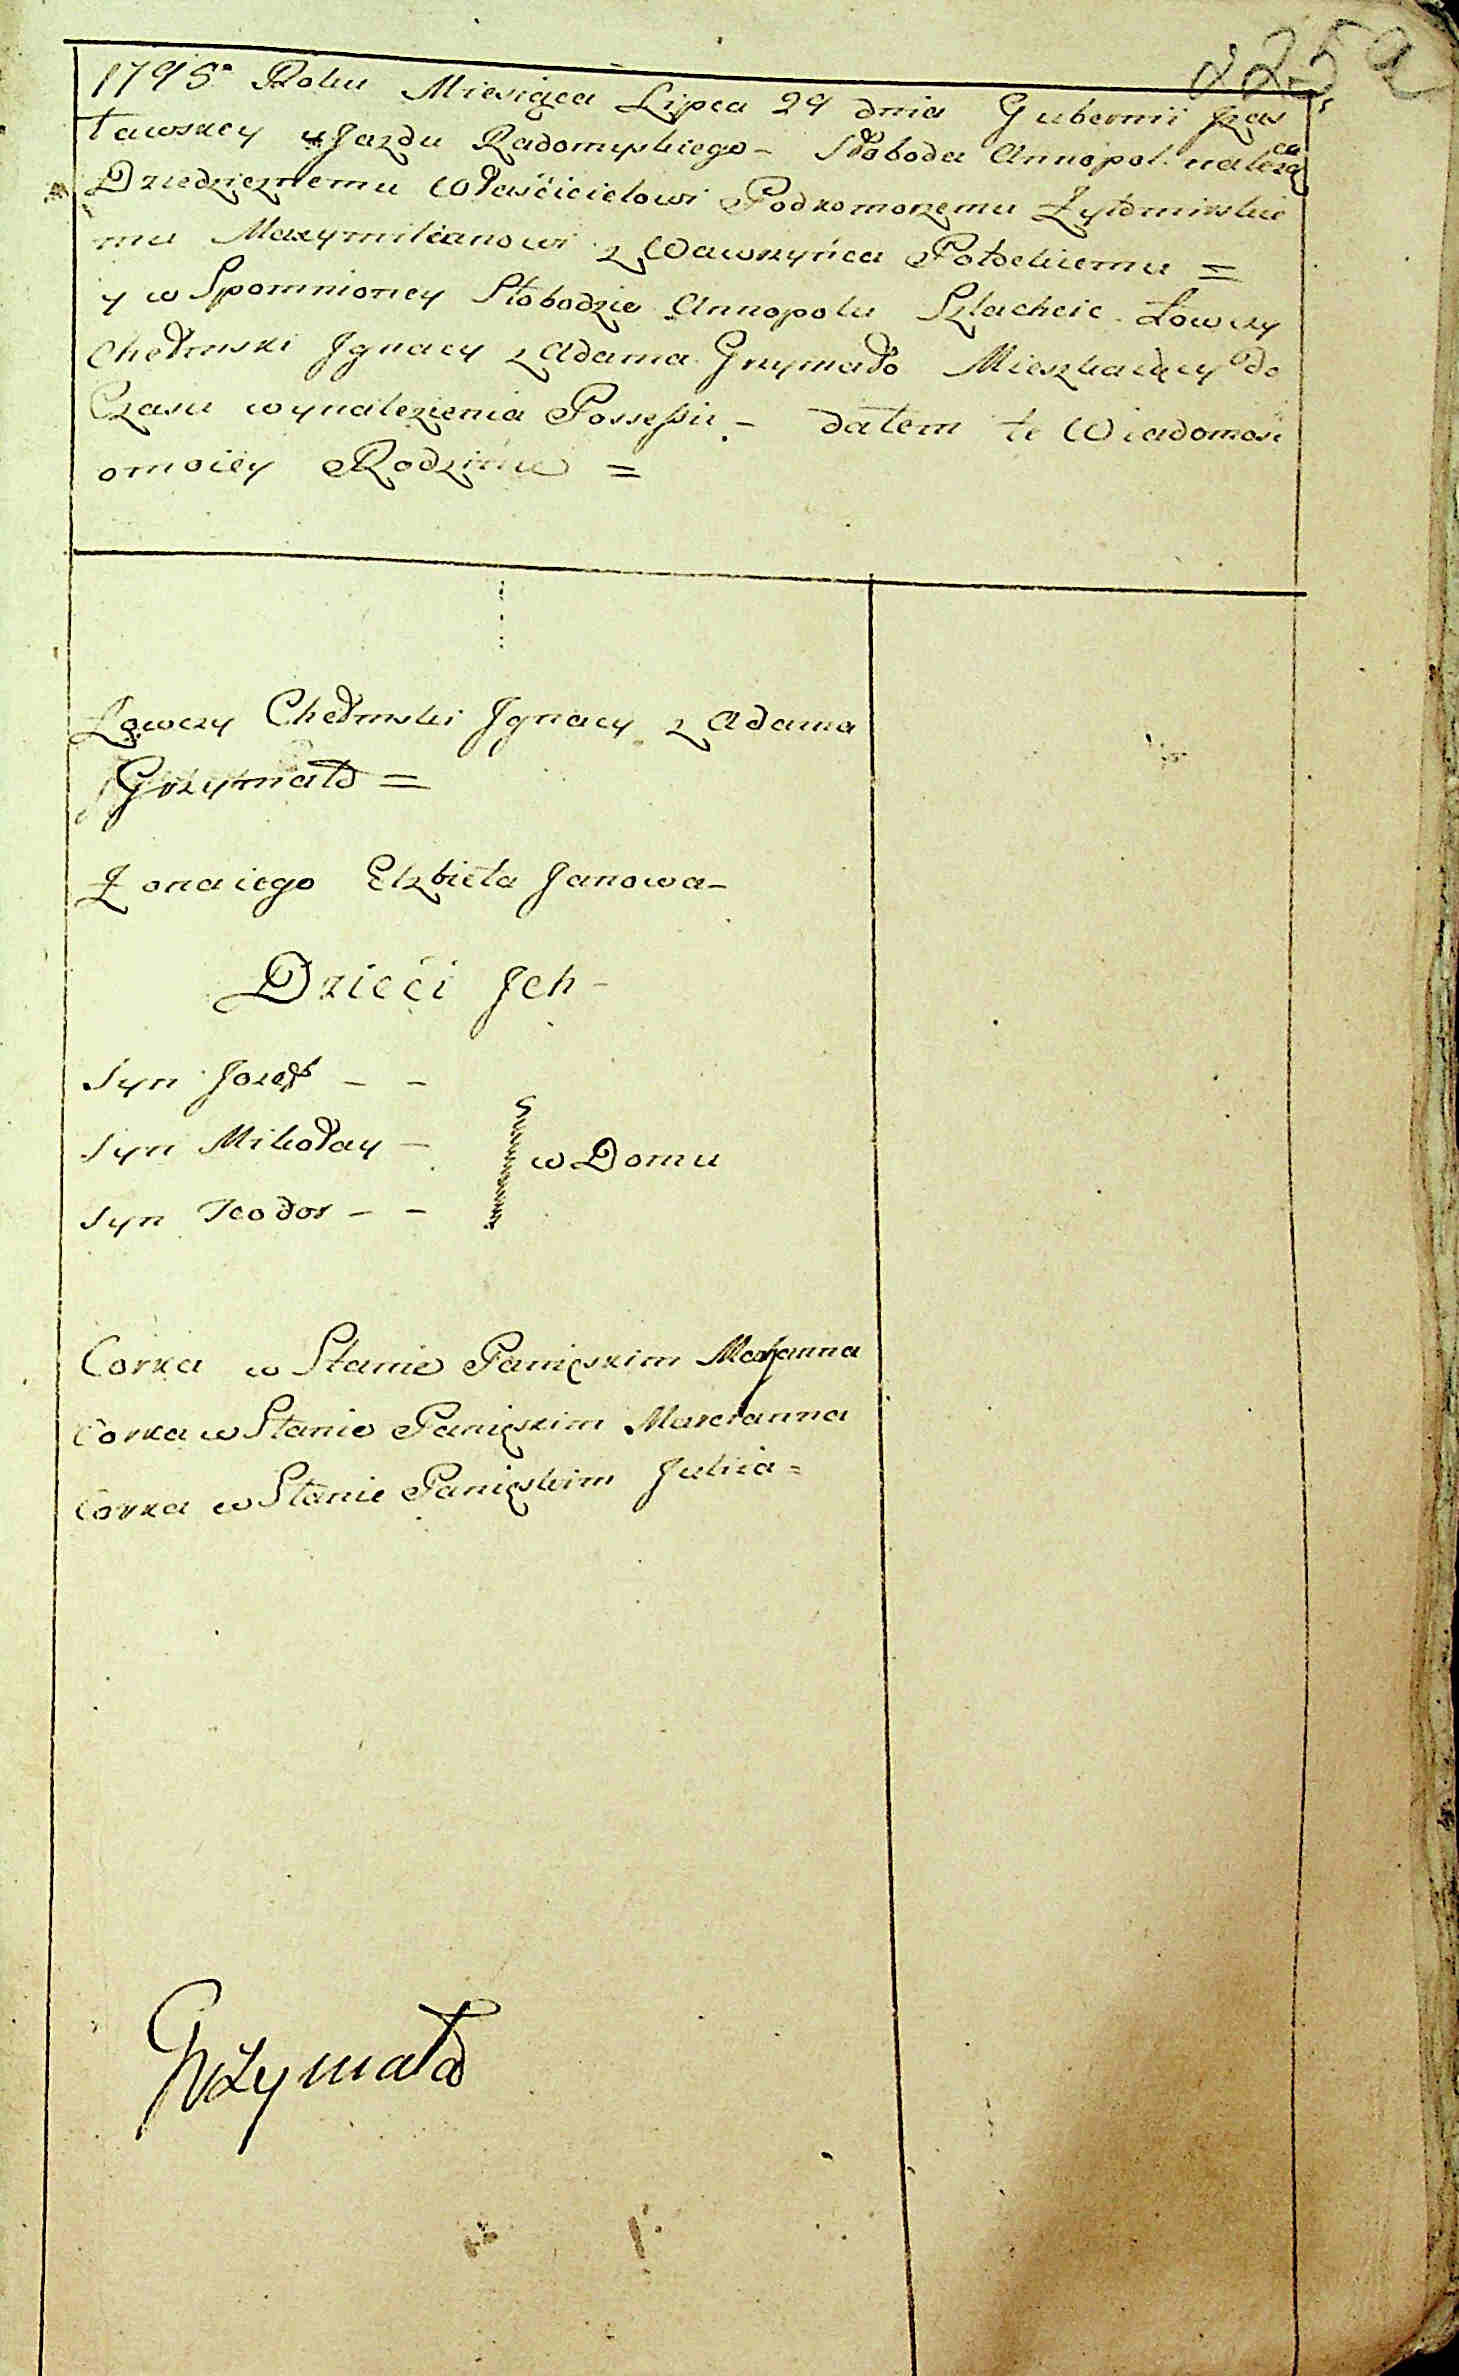 225a
1795º Roku Miesiąca Lipca 29 dnia Gubernii Jzas
ławskey ujazdu Radomyskiego - Słoboda Annopol należąca
Dziedzicznemu Właścicielowi Podkomorzemu Żytomirskie
mu Maxymilianowi z Wawrzyńca Potockiemu =
y w Spomnioney Słobodzie Annopolu Szlachcic Łowczy
Chełmski Jgnacy z Adama Grzymało Mieszkaiący do
Czasu wynalezienia Possessii - dałem tę Wiadomość
o moiey Rodzinie =
Łowczy Chełmski Jgnacy z Adama
Grzymało =
Żona iego Elzbieta Janowa -
Dzieci Jch -
Syn Jozef - -
Syn Mikołay -
w Domu
Syn Teodor - -
Corka w Stanie Panięskim Maryanna
Corka w Stanie Panięskim Marcianna
Corka w Stanie Panięskim Julia =
Grzymało